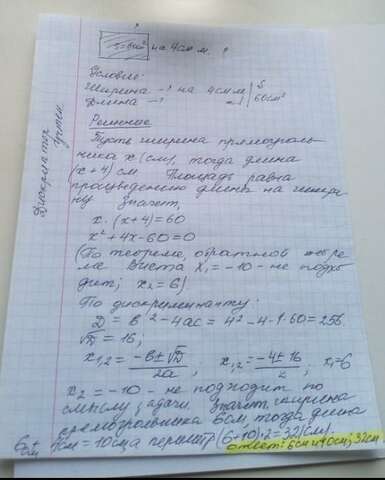 ?
S=60см² на 4см м. ?
Условие:
Ширина -? на 4см м | S
Длина -? | 60см²
Решение
Пусть ширина прямоуголь-
ника x (см), тогда длина
(x+4) см. Площадь равна
произведению длины на шири-
ну. Значит,
x·(x+4)=60
x²+4x-60=0
(По теореме, обратной теоре-
ме Виета x₁=-10 - не подхо-
дит; x₂=6)
По дискременанту:
D = b²-4ac = 4²-4·1·60=256.
√D=16;
x₁,₂ = -b±√D / 2a ; x₁,₂ = -4±16 / 2 ; x₁=6
x₂=-10 - не подходит по
смыслу задачи. Значит, ширина
прямоугольника 6см, тогда длина
6см + 4см = 10см, а периметр (6+10)·2=32(см).
ответ: 6см и 10см; 32см
Дискременант